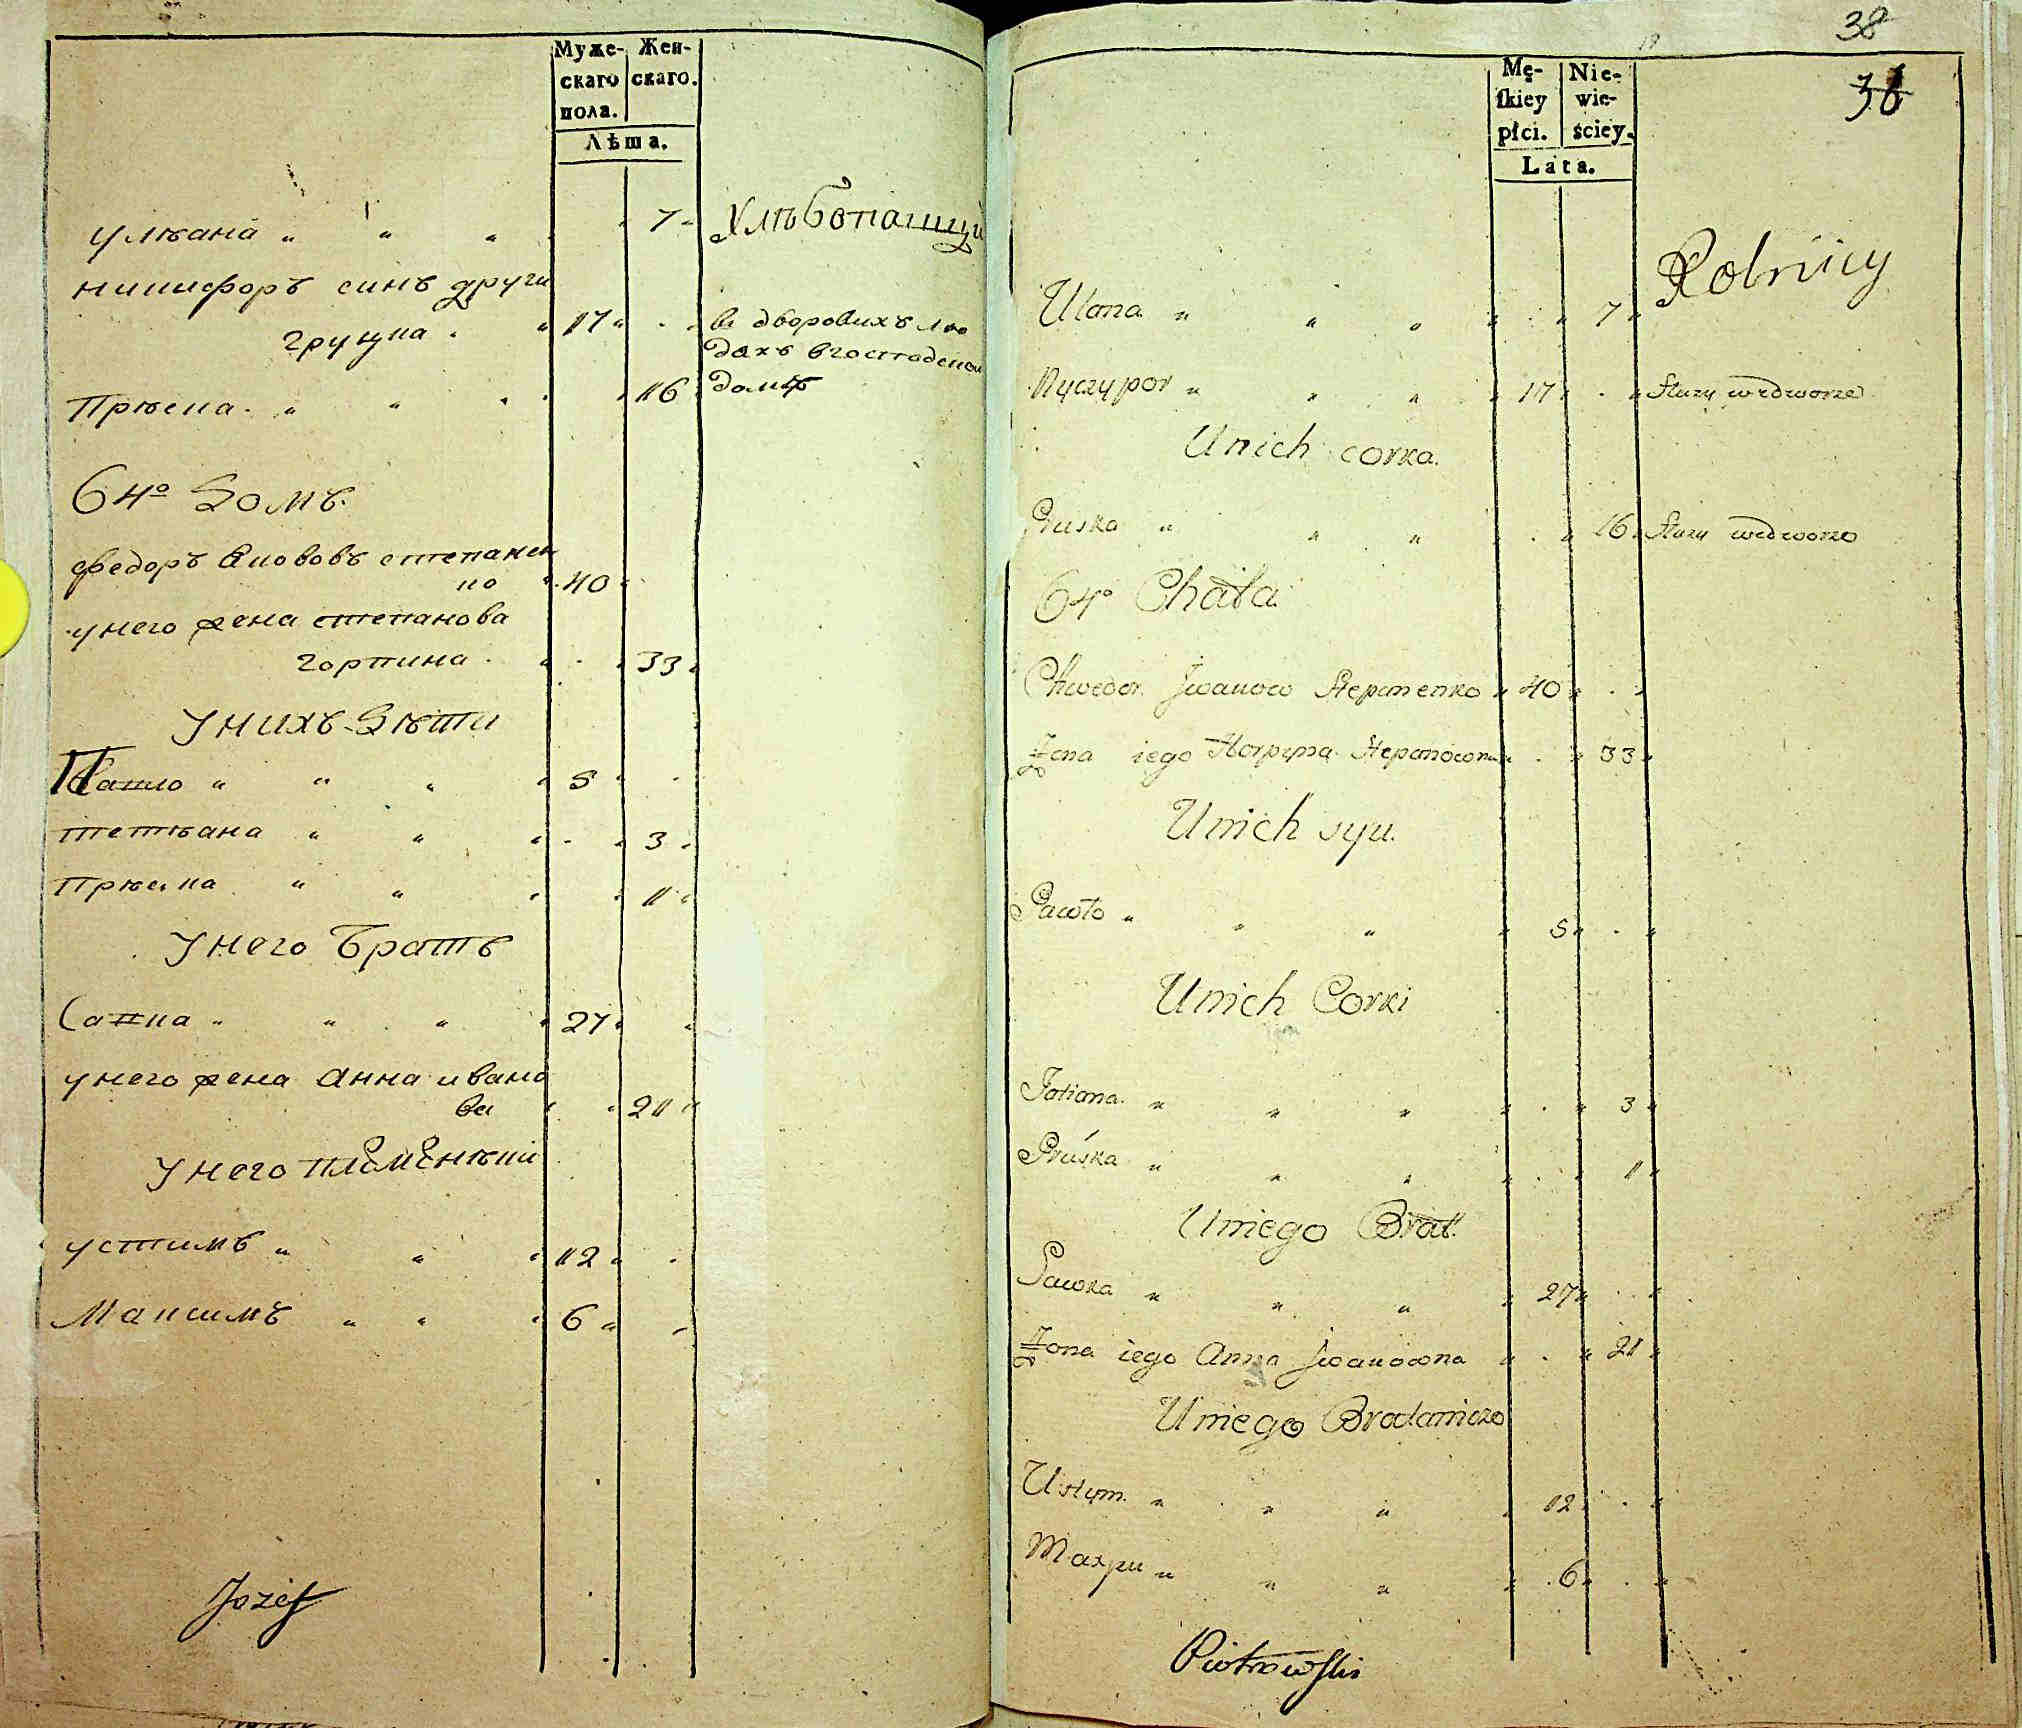 Муже- Жен-
скаго скаго.
пола.
Лѣта.
улѣана " " " 7 Хлѣбопашци
никифоръ синъ други
грицка " 17 " в дворовихъ лю
дахъ вгосподском
домѣ
Прѣска " " 16
64º Домъ.
федоръ Якововъ степанен
ко 40
унего жена степанова
горпина 33
Унихъ Дѣти
Павло " " " 5
тетѣана " " 3
Прѣска " " 11
Унего Братъ
Савка " " " 27
унего жена Анна ивано
ва 21
Унего племѣнѣки
устимъ " " 12
Максимъ " " 6
Jozef
38
36
Mę- Nie-
ſkiey wie-
płci. ściey.
Lata.
Rolnicy
Ulana " " " 7
Nyczypor " " " 17 Służy wedworze
Unich corka.
Pruska " " " 16 Służy wedworze
64º Chata
Chwedor Jwanow Stepanenko 40
Zona iego Horpyna Stepanowna 33
Unich syn.
Pawło " " " 5
Unich Corki
Tatiana " " " 3
Pruska " " " 11
Uniego Brat.
Sawka " " " 27
Zona iego Anna Jwanowna 21
Uniego Bratanicze
Ustym " " " 12
Maxym " " " 6
Piotrowſki